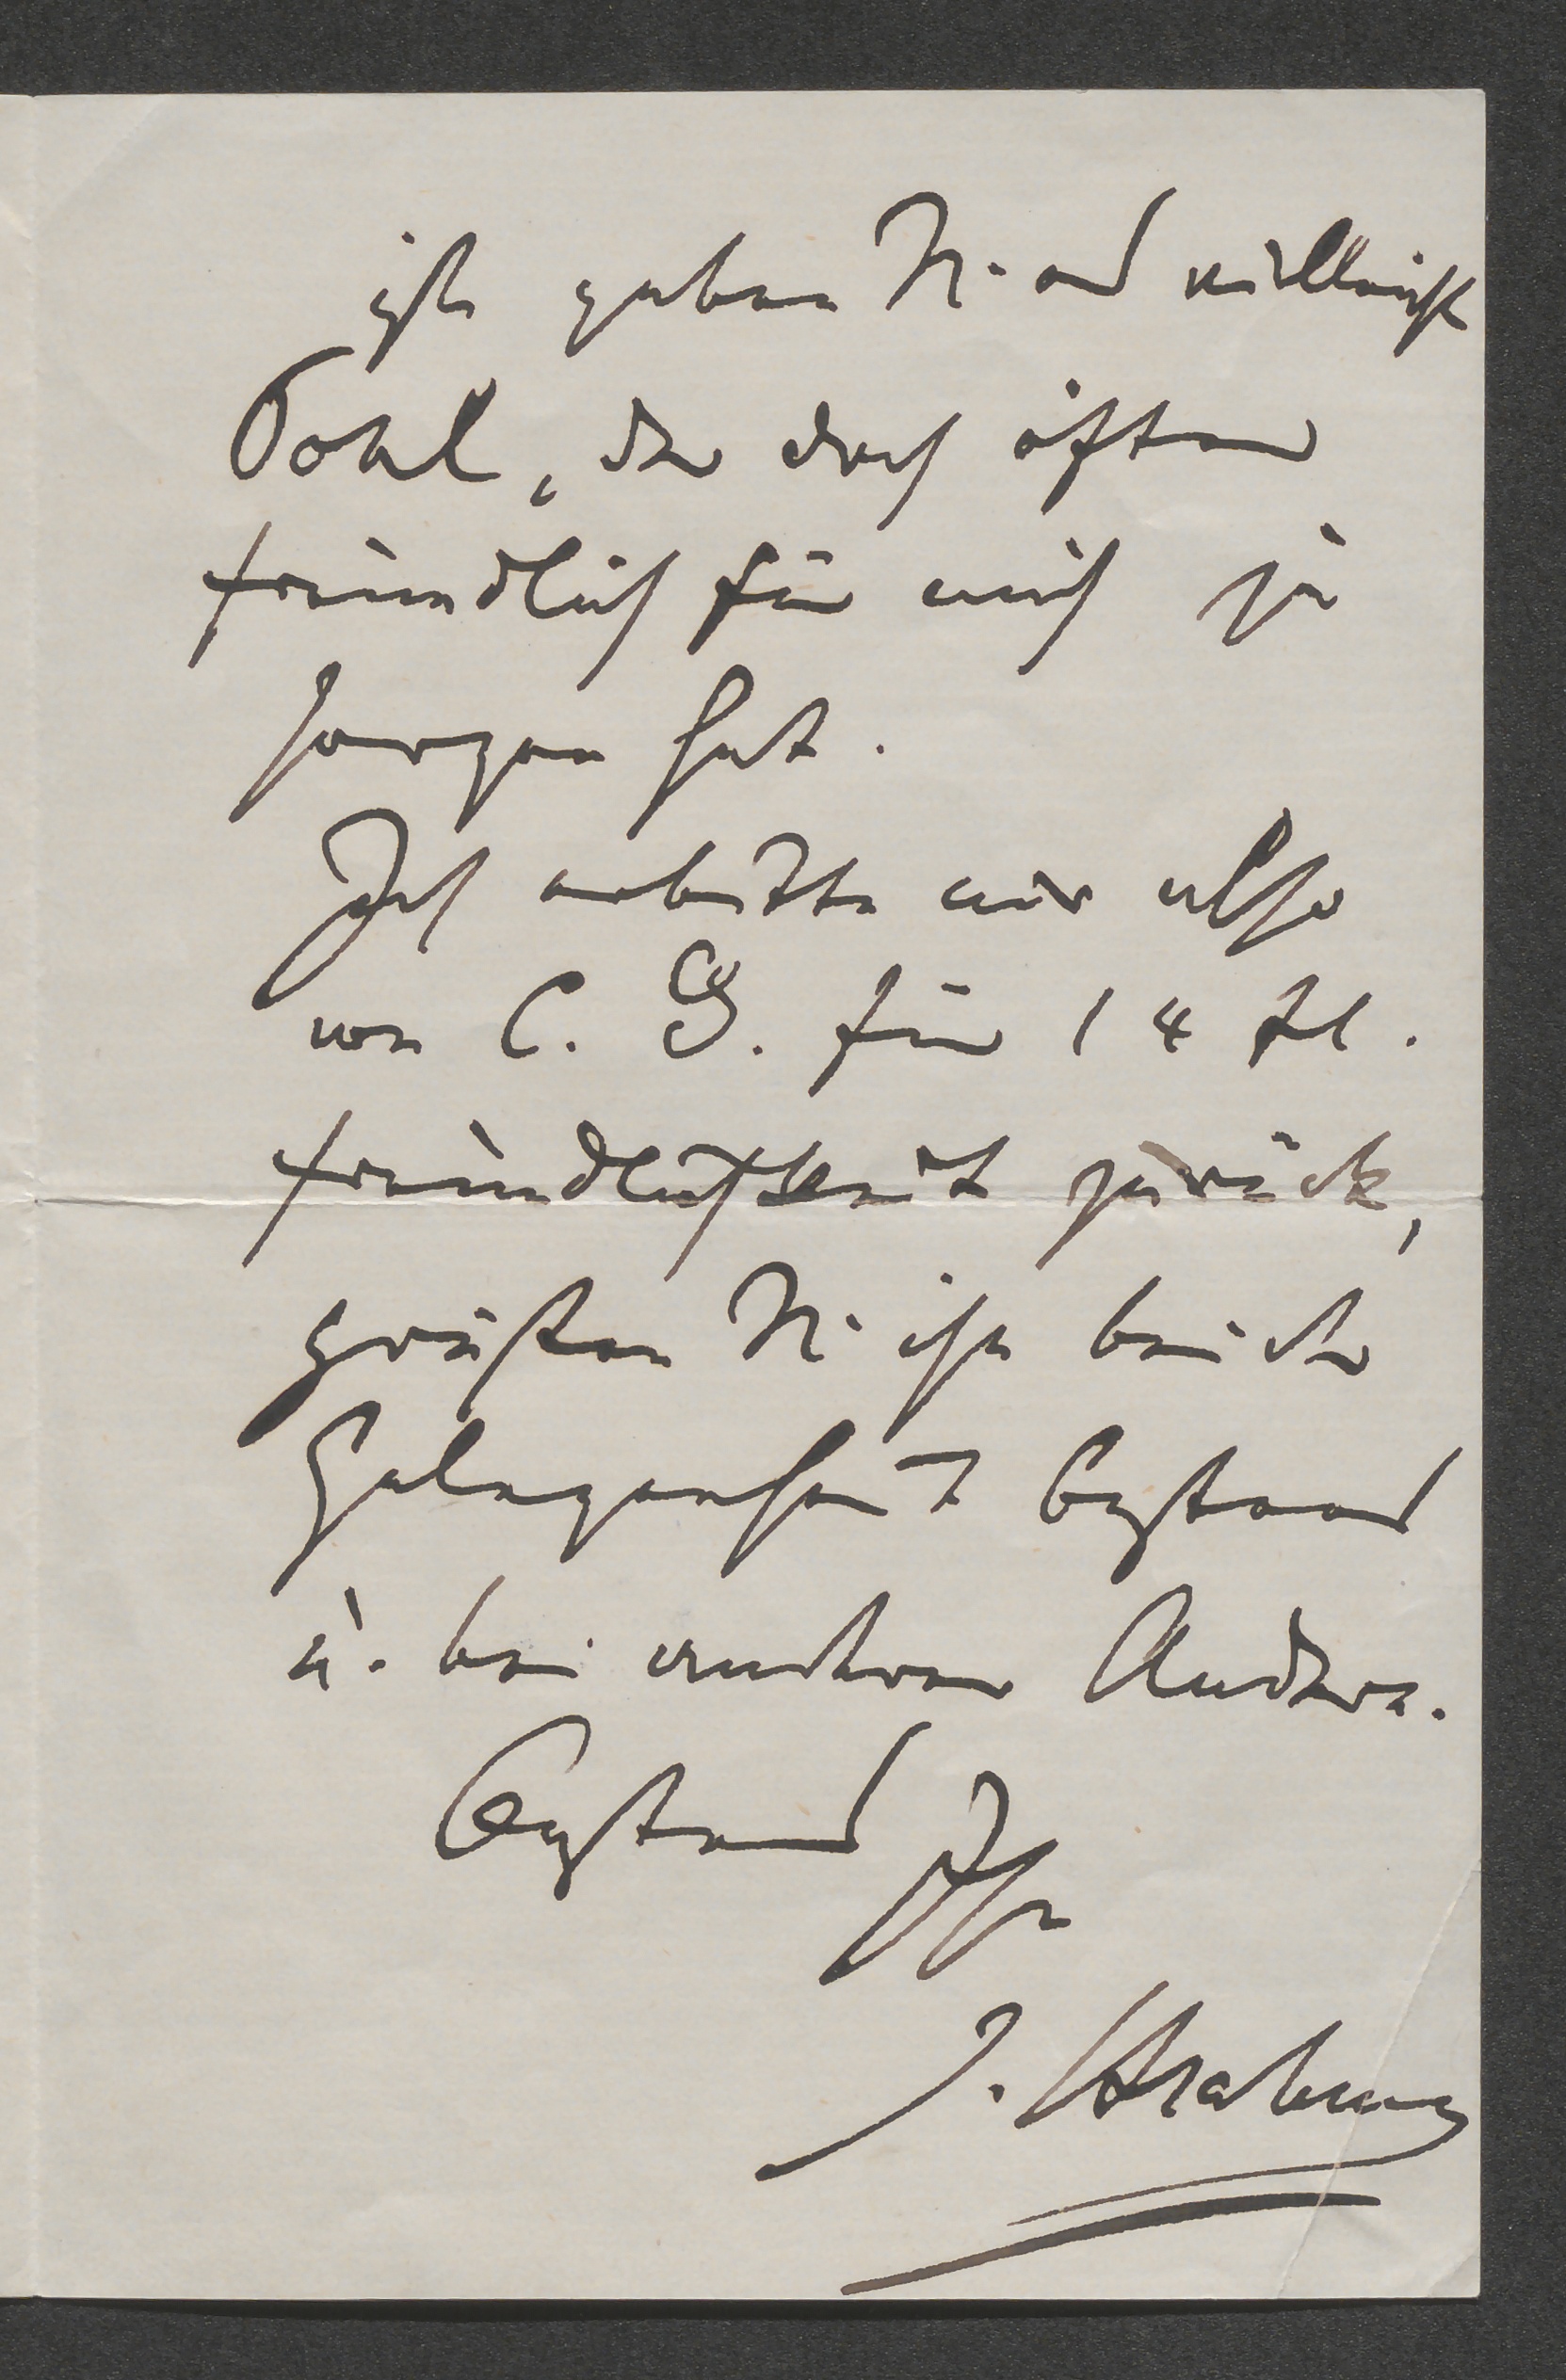 geben Sie es vielleicht
Pohl, der doch öfter
freundlich für mich zu
sorgen hat.
Ich erbitte mir also
von C. G. für 14 fl.
Freundlichkeit zurück,
grüßen Sie ihn bei der
Gelegenheit bestens
u. bei andrer Andere.
Bestens Ihr
J. Brahms